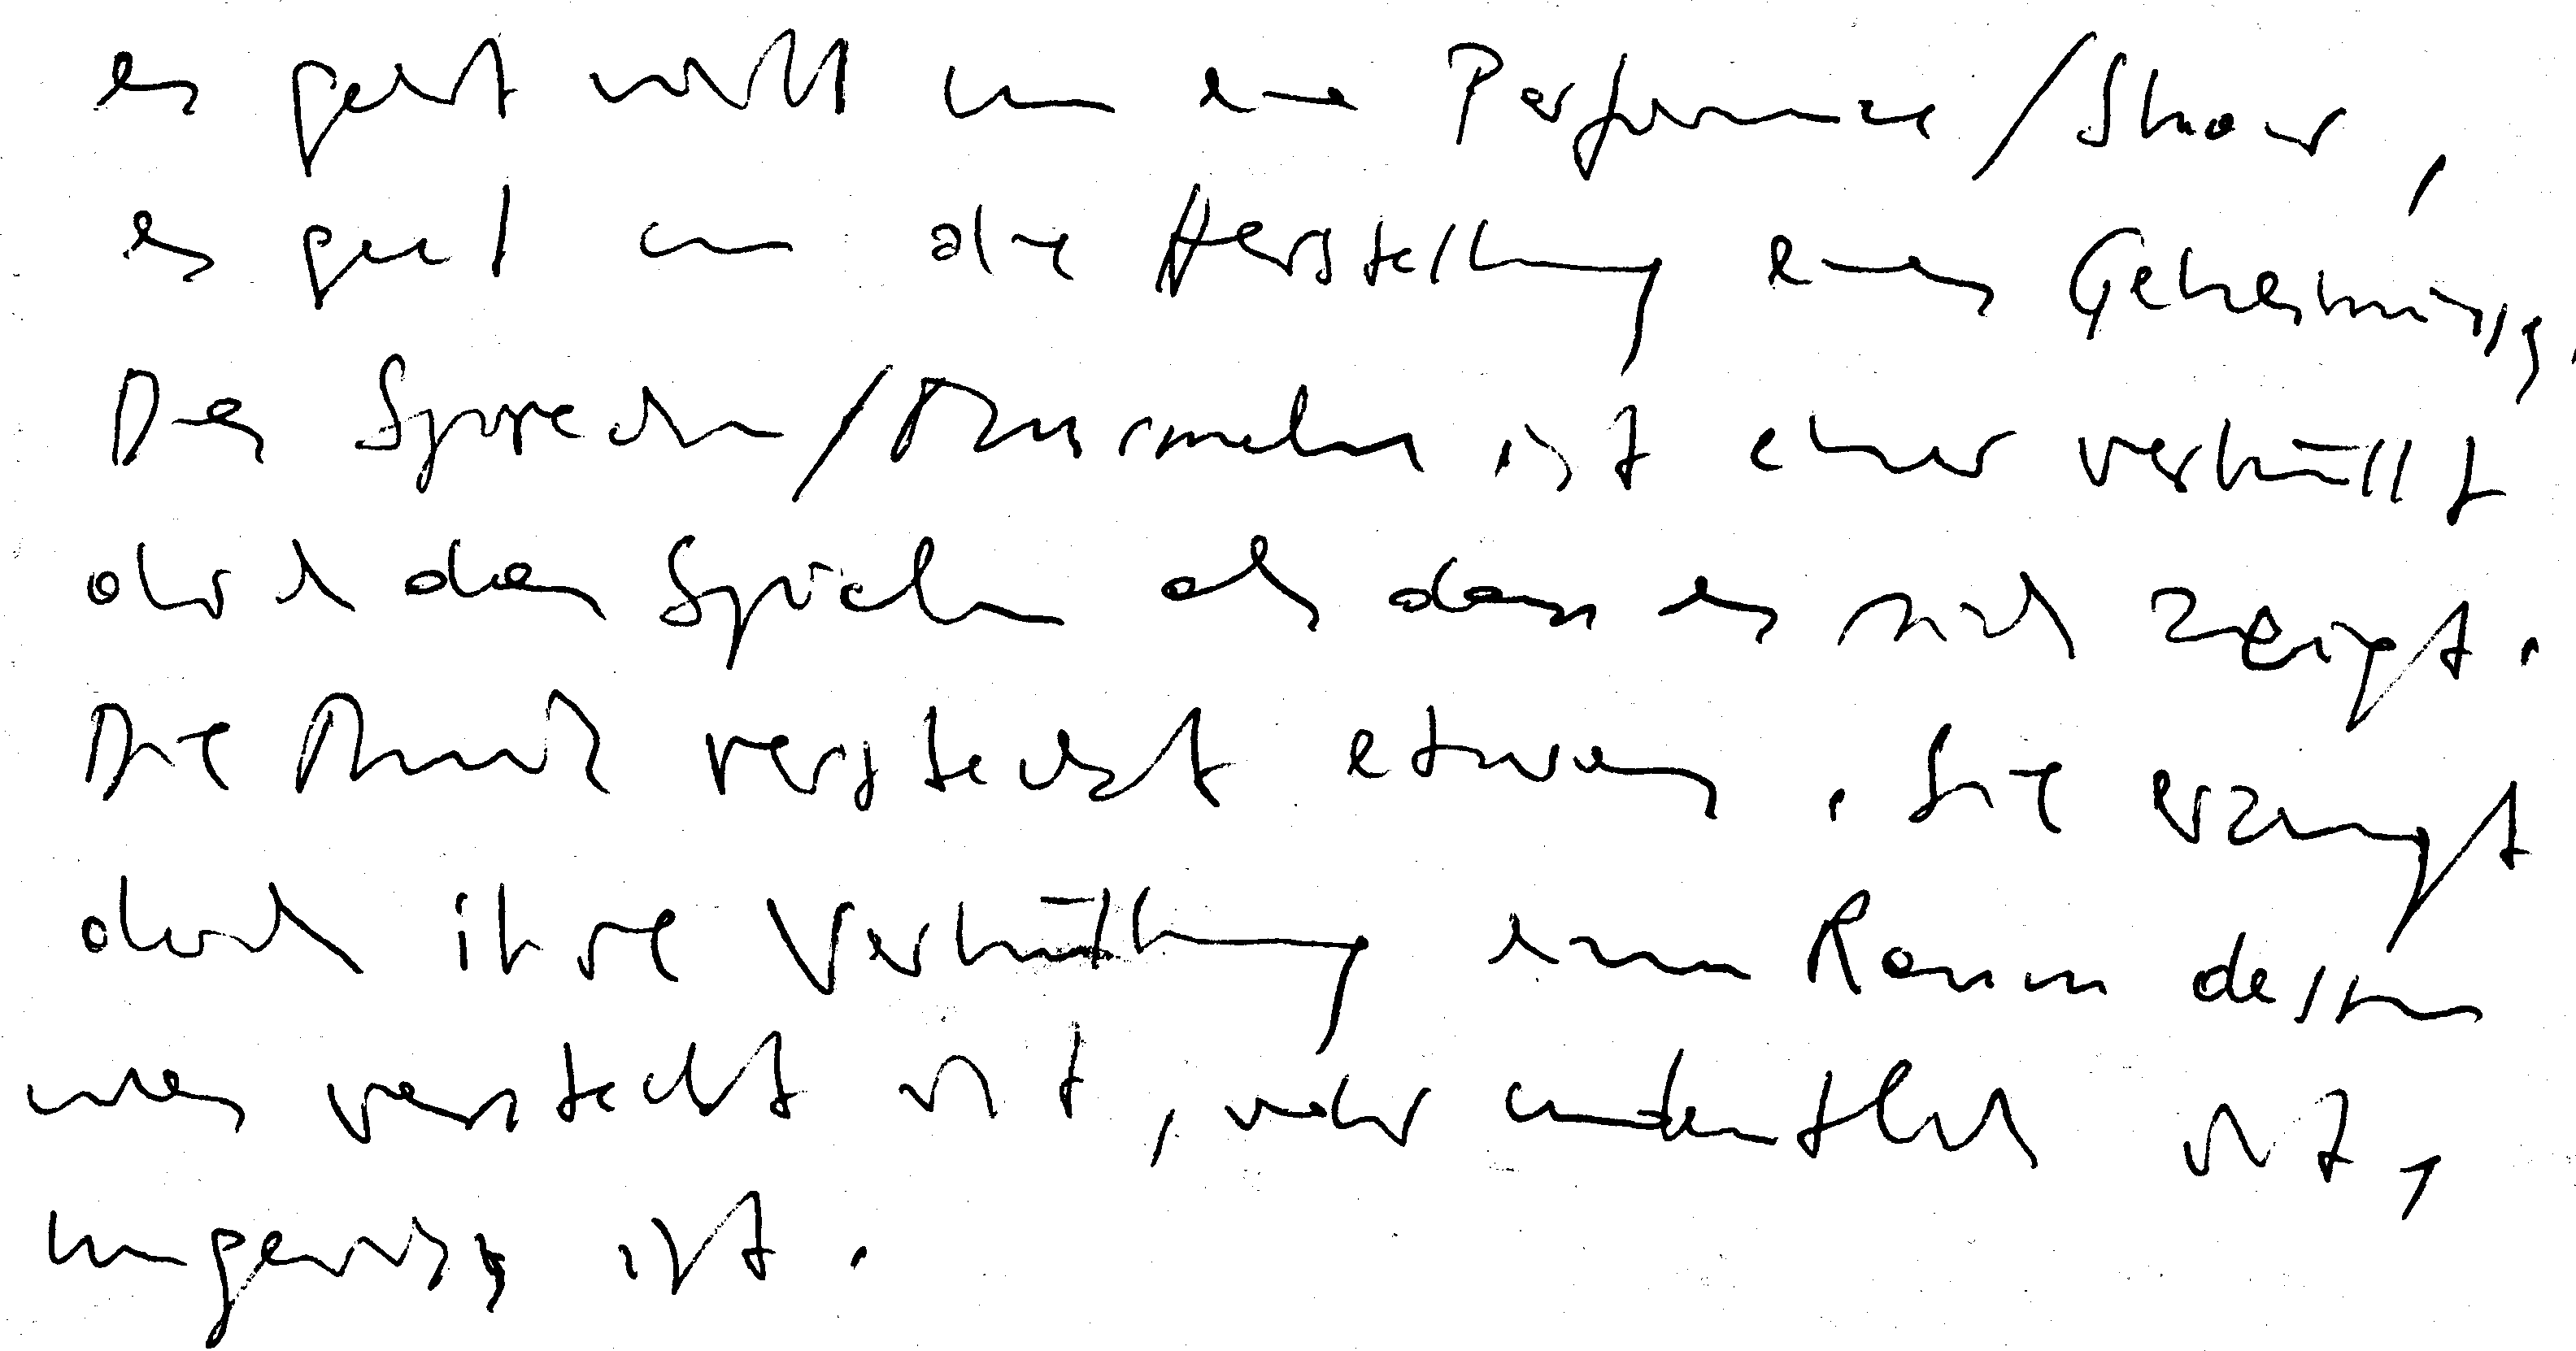 es geht nicht um eine Performance/Show,
es geht um die Herstellung eines Geheimnisses.
Das Sprechen/Murmeln ist eher verhüllt
durch das Sprechen als dass es sich zeigt.
Die Musik versteckt etwas. Sie erzeugt
durch ihre Verhüllung einen Raum dessen
was versteckt ist, oder undeutlich ist,
ungewiss ist.